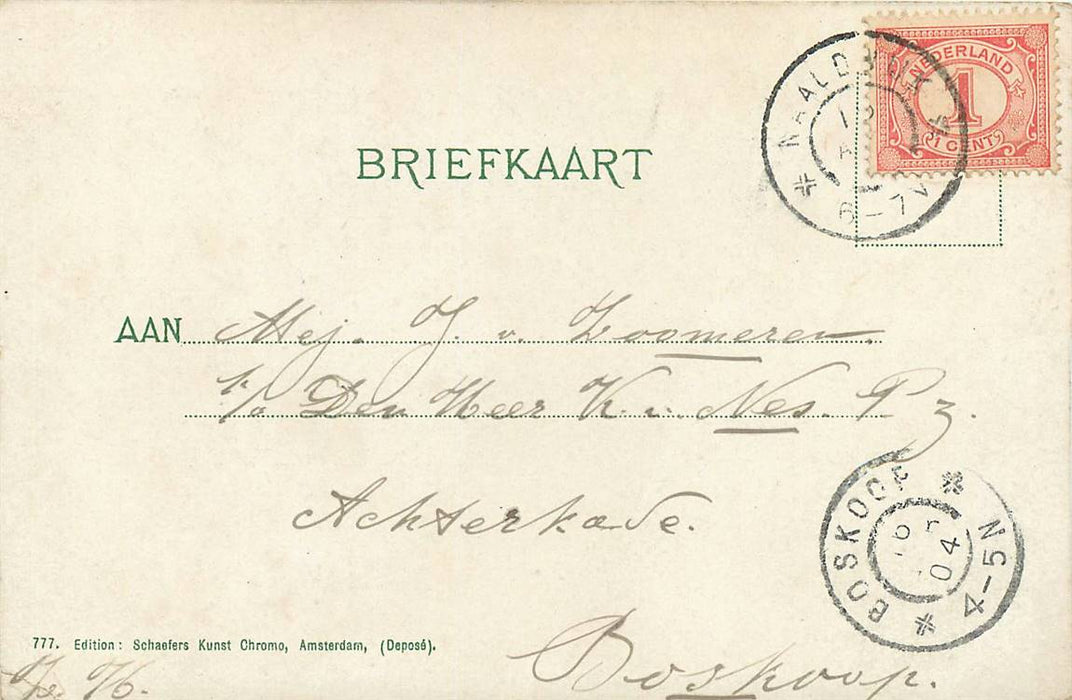 NEDERLAND
1
1 CENT
NAALDWIJK
6-7 V
BRIEFKAART
AAN Mej. J. v. Zoomeren.
p/a Den Heer K. v. Nes. Pz.
Achterkade.
BOSKOOP
04
4-5 N
Boskoop.
777. Edition: Schaefers Kunst Chromo, Amsterdam, (Deposé).